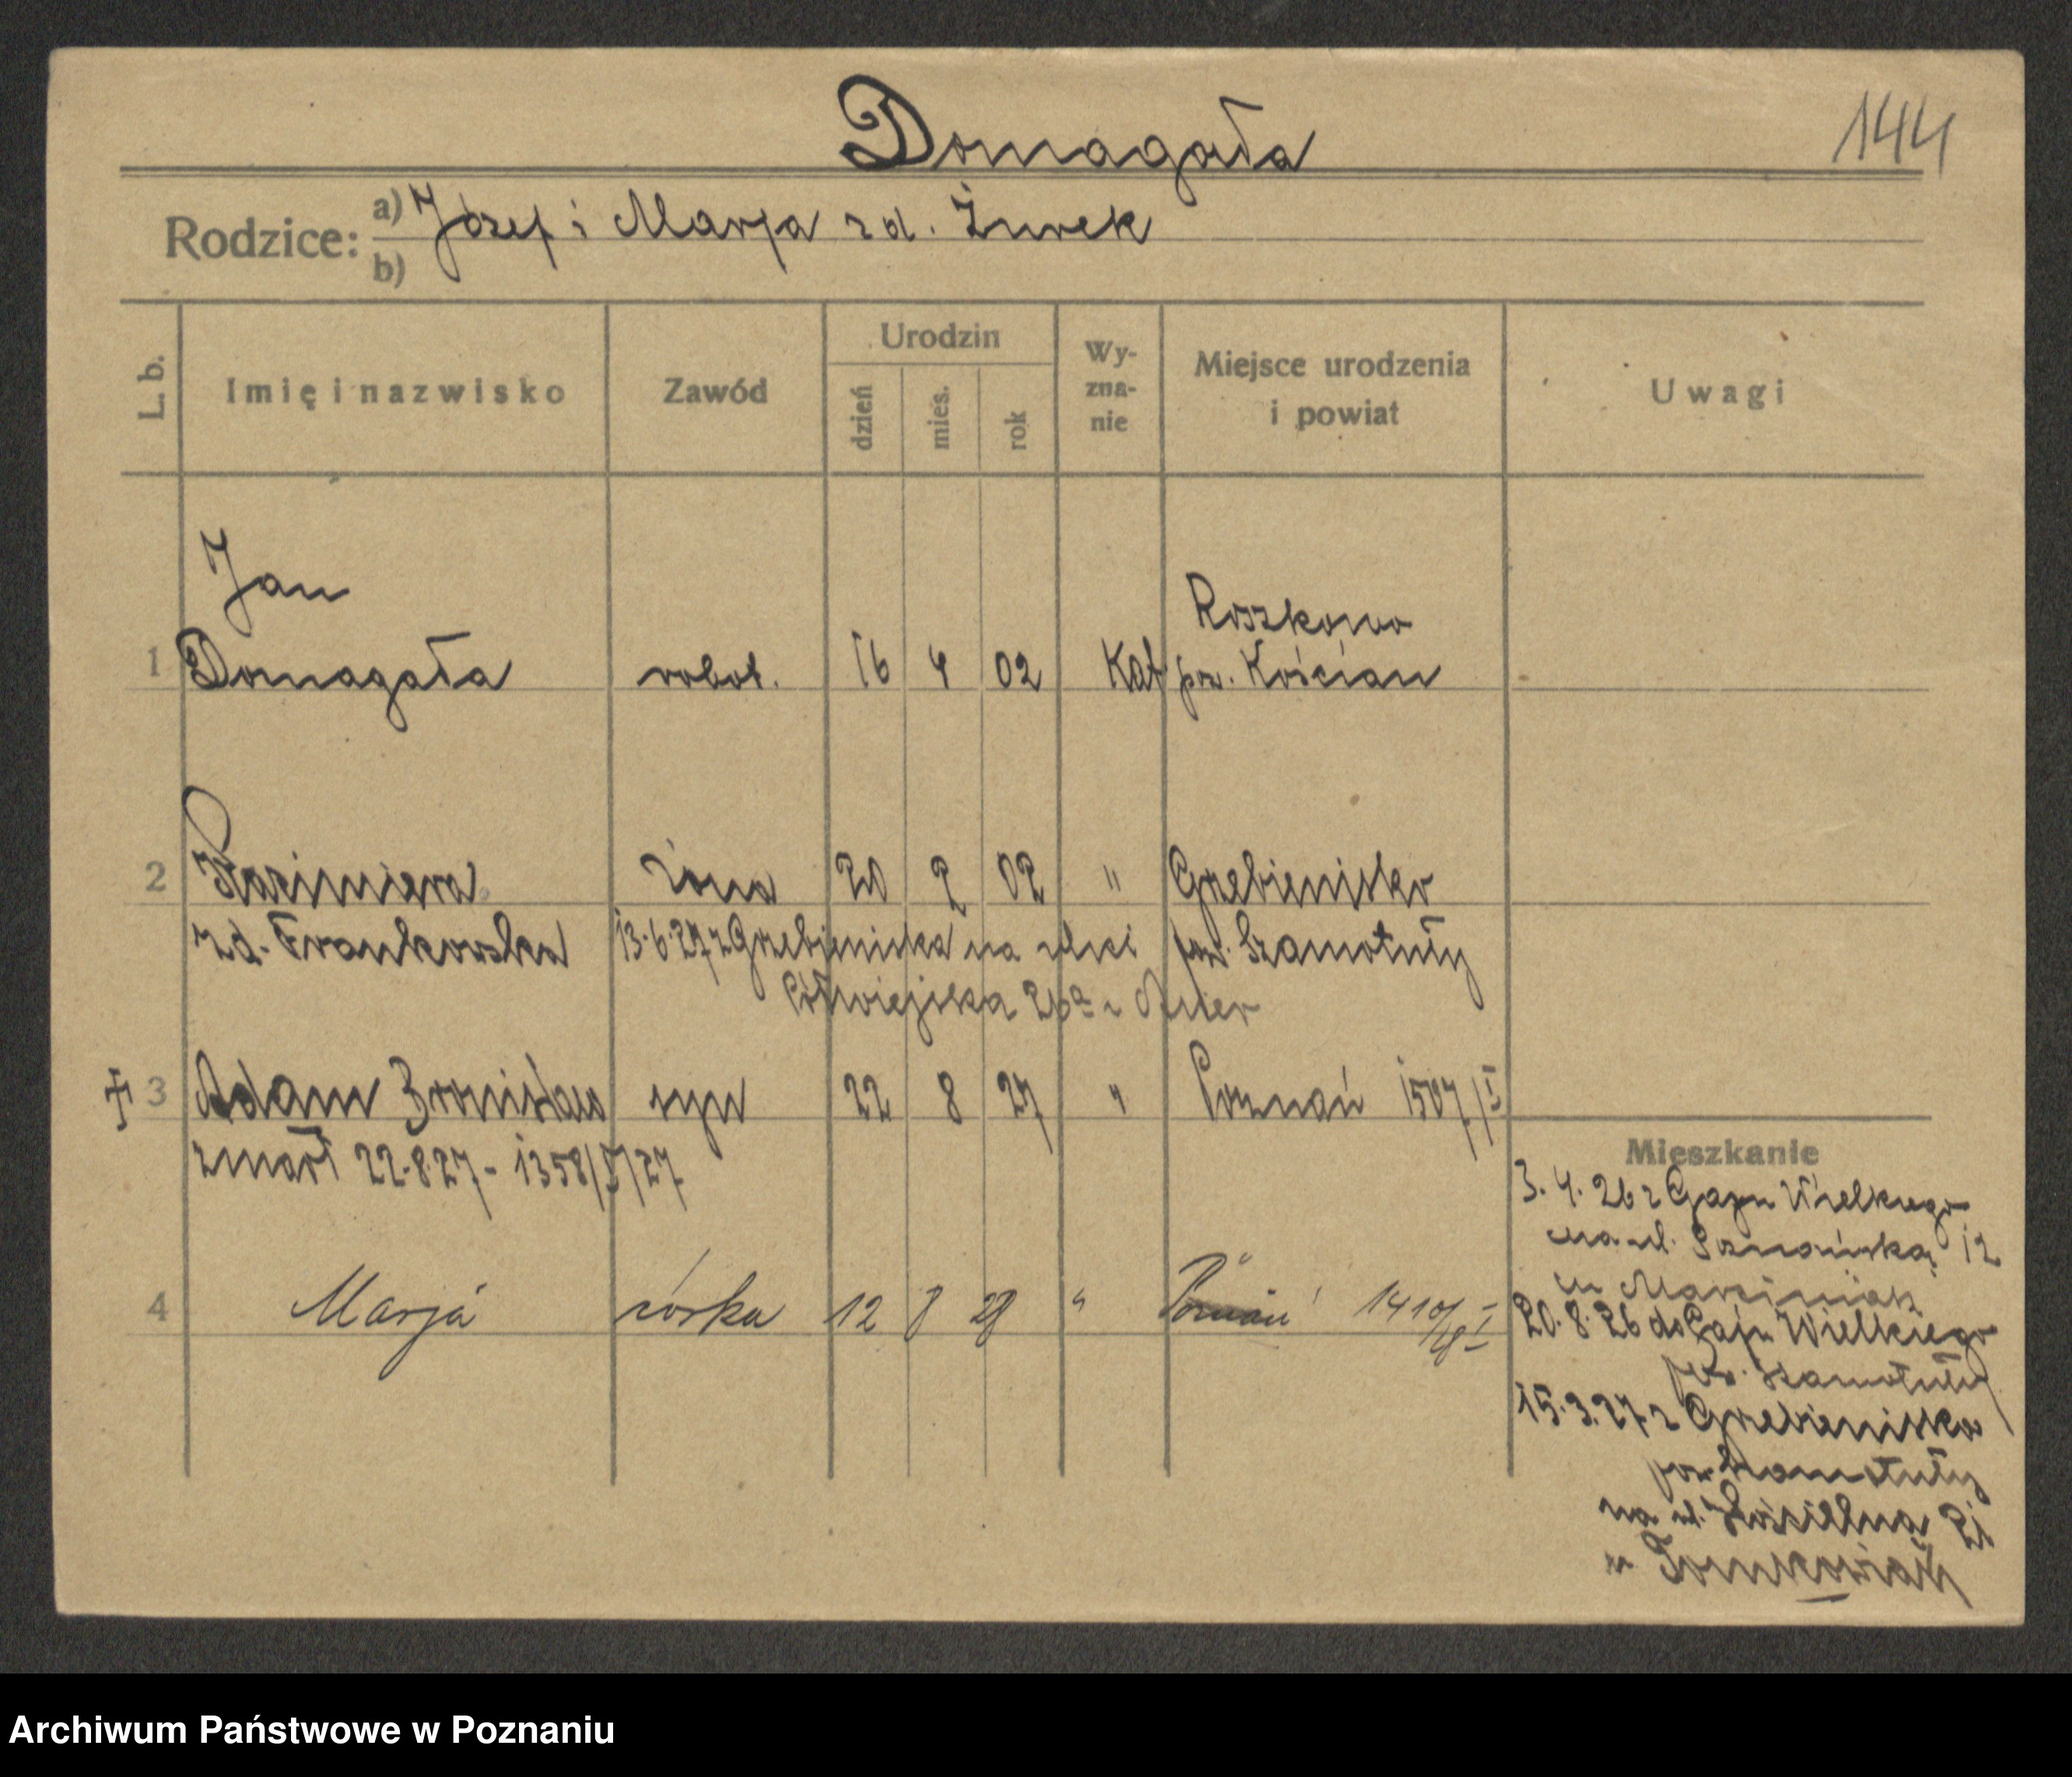 Domagała
144
Rodzice: a) Józef i Marja zd. Żurek
b)
L. b. Imię i nazwisko Zawód Urodzin dzień mies. rok Wy-zna-nie Miejsce urodzenia i powiat Uwagi
Jan
Roszkowo
1 Domagała robot. 16 4 02 Kat pow. Kościan
2 Kazimiera żona 20 2 02 " Grzebienisko
zd. Frankowska 13.6.27 z Grzebieniska na ulici pow. Szamotuły
Półwiejska 26a u
3 Adam Bronisław syn 22 8 27 " Poznań 1507/I
zmarł 22.8.27 - 1358/I/27
Mieszkanie
3.4.26 z Gaju Wielkiego
na ul. Poznańską 12
u Marciniak
4 Marja córka 12 8 28 " Poznań 1410/I/28
20.8.26 do Gaju Wielkiego
pow. Szamotuły
15.3.27 z Grzebieniska
pow. Szamotuły
na ul. Kościelna 21
u Tomkowiak
Archiwum Państwowe w Poznaniu